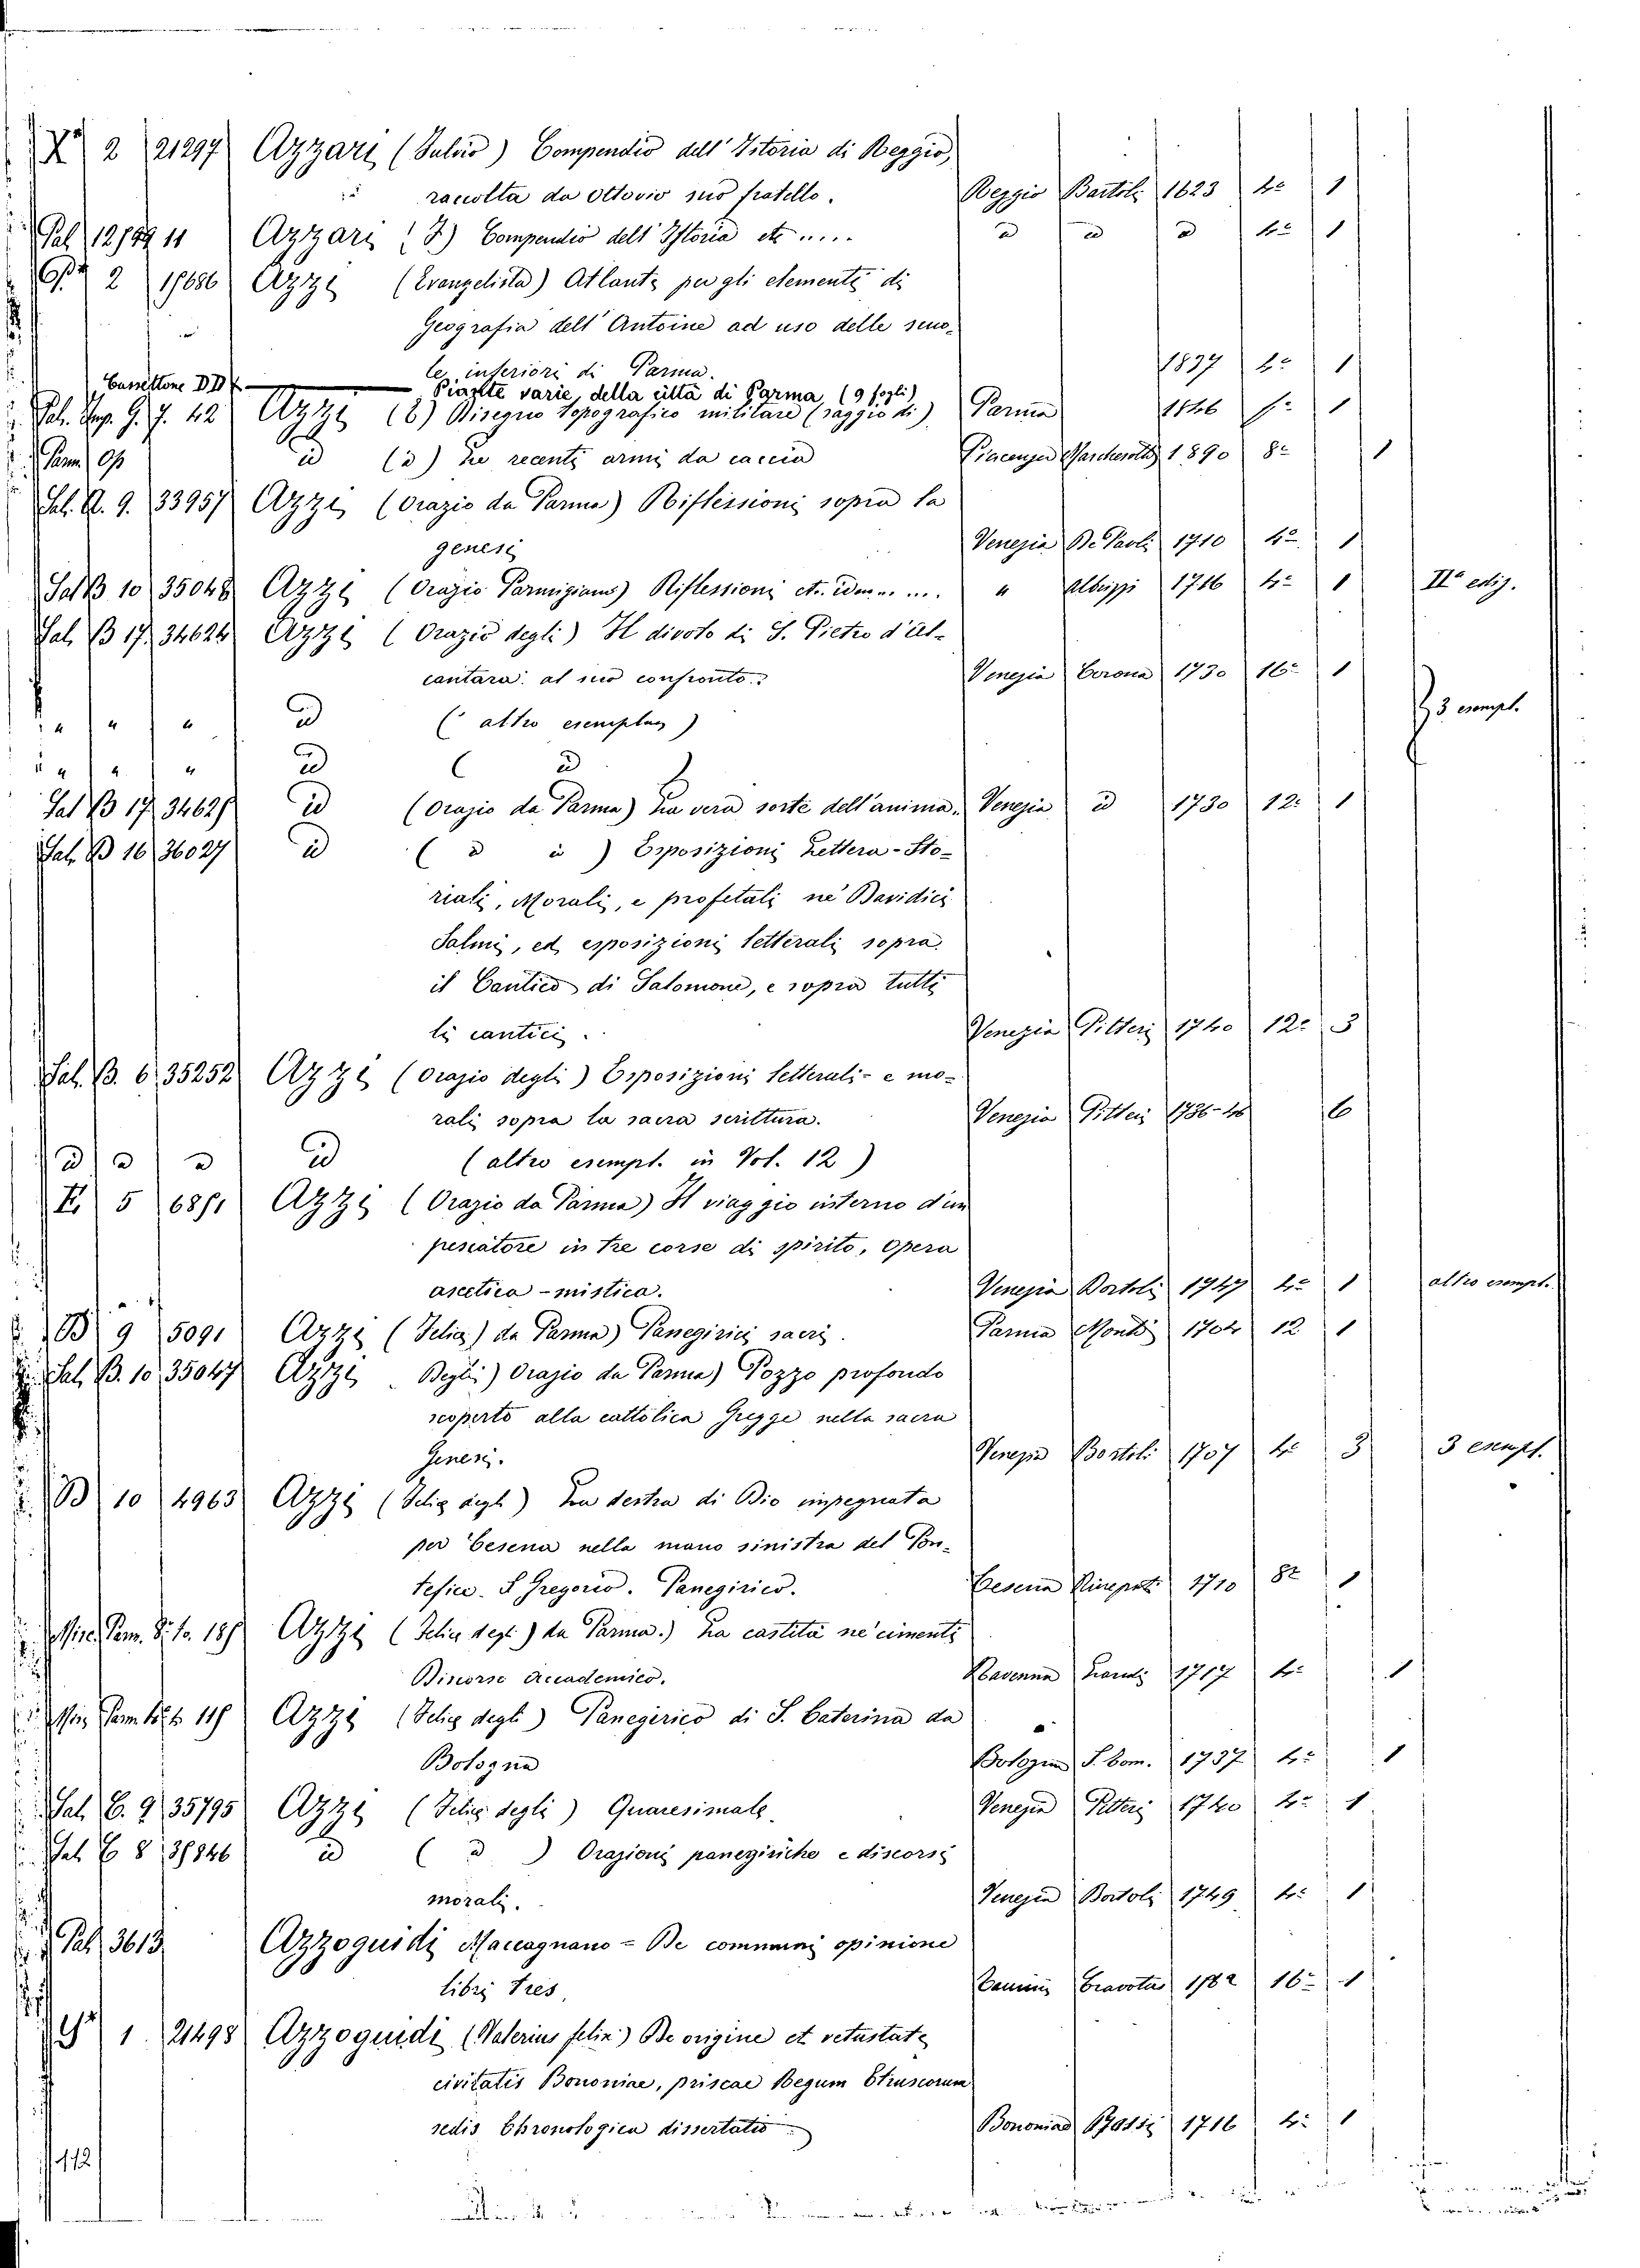 X 2 21297 Azzari (Fulvio) Compendio dell' Istoria di Reggio,
raccolta da Ottovio suo fratello. Reggio Bartoli 1623 4° 1
Pal 11 Azzari (F.) Compendio dell Istoria etc .... id id id 4° 1
2 18686 Azzi (Evangelista) Atlante per gli elementi di
Geografia dell' Antoine ad uso delle scuo-
le inferiori di Parma. 1837 1
Cassettone DD Piante varie, della città di Parma, (9 fogli)
42 Azzi (E) Disegno topografico militare (saggio di) Parma 1846 1
Parm id (id) Le recenti armi da caccia Piacenza Marchesotti 1890 8° 1
Sal. A. 9. 33957 Azzi (Orazio da Parma) Riflessioni sopra la
genesi Venezia De Paoli 1710 4° 1
Sal B 10 35048 Azzi (Orazio Parmigiano) Riflessioni etc. idem .... " Albrizzi 1716 4° 1 IIa ediz.
Sal B 17 34624 Azzi (Orazio degli) Il divoto di S. Pietro d'Al-
cantara al suo confronto. Venezia Corona 1730 16° 1
" " " id (altro esemplar) 3 esempl.
" " " id ( id )
Sal B 17 34625 id (Orazio da Parma) La vera sorte dell'anima. Venezia id 1730 12° 1
Sal. B 16 36027 id ( id id ) Esposizioni Lettera-Sto-
riali, Morali, e profetali ne' Davidici
Salmi, ed esposizioni letterali sopra
il Cantico di Salomone, e sopra tutti
li cantici. Venezia Pitteri 1740 12° 3
Sal. B. 6 35252 Azzi (Orazio degli) Esposizioni letterali- e mo-
rali sopra la sacra scrittura. Venezia Pitteri 1736-46 6
id id id id (altro esempl. in Vol. 12)
5 Azzi (Orazio da Parma) Il viaggio interno d'un
pescatore in tre corse di spirito, Opera
ascetica - mistica. Venezia Bortoli 1747 4° 1 altro esempl.
B 9 5091 Azzi (Felice) da Parma) Panegirici sacri. Parma Monti 1704 12 1
Sal B. 10 35047 Azzi Degli) Orazio da Parma) Pozzo profondo
scoperto alla cattolica Gregge nella sacra
Genesi. Venezia Bortoli 1707 4° 3 3 esempl.
B 10 4963 Azzi (Felice degli) La destra di Dio impegnata
per Cesena nella mano sinistra del Pon-
tefice. S Gregorio. Panegirico. Cesena 1710 8° 1
Misc. Parm. 8. to. 185 Azzi (Felice degl.) da Parma.) La castità ne' cimenti
Discorso Accademico. Ravenna Landi 1717 4° 1
Misc Parm Azzi (Felice degli) Panegirico di S. Caterina da
Bologna Bologna S. Tom. 1737 4° 1
Sal C. 9 35795 Azzi (Felice degli) Quaresimale. Venezia Pitteri 1740 4° 1
Sal C 8 id ( id ) Orazioni panegiriche e discorsi
morali. Venezia Bortoli 1749 4° 1
Pal 3613 Azzoguidi Maccagnano = De communi opinione
libri tres Camerini Gravotus 1582 16° 1
1 21498 Azzoguidi (Valerius felix) De origine et vetustate
civitatis Bononiae, priscae Regum Etruscorum
sedis Chronologica dissertatio Bononiae 1716 4° 1
112